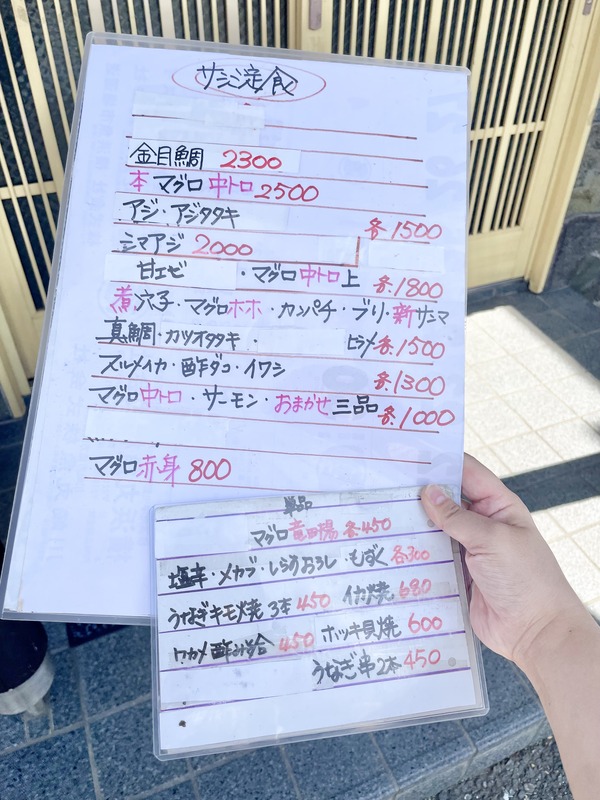 サシミ定食
金目鯛 2300
本マグロ中トロ 2500
アジ・アジタタキ 各1500
シマアジ 2000
甘エビ ・マグロ中トロ上 各1800
煮穴子・マグロホホ・カンパチ・ブリ・新サンマ
真鯛・カツオタタキ・ ヒラメ 各1500
スルメイカ・酢ダコ・イワシ 各1300
マグロ中トロ・サーモン・おまかせ三品 各1000
マグロ赤身 800
単品
マグロ竜田揚 各450
塩辛・メカブ・しらすおろし・もずく 各300
うなぎキモ焼 3本 450 イカ焼 680
ワカメ酢みそ合 450 ホッキ貝焼 600
うなぎ串2本 450